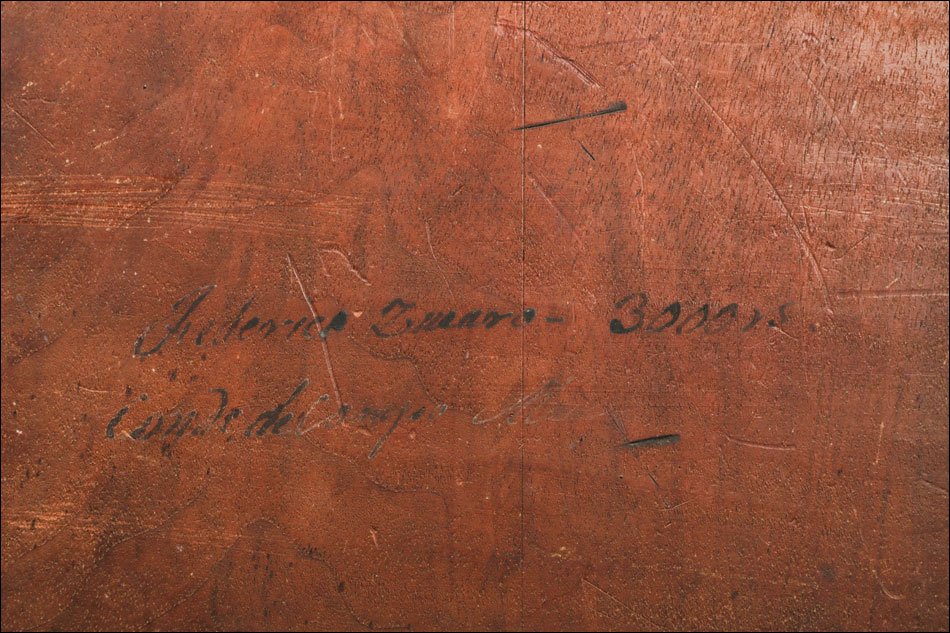 Federico Zucaro = 3000 rs.
Conde de Campo